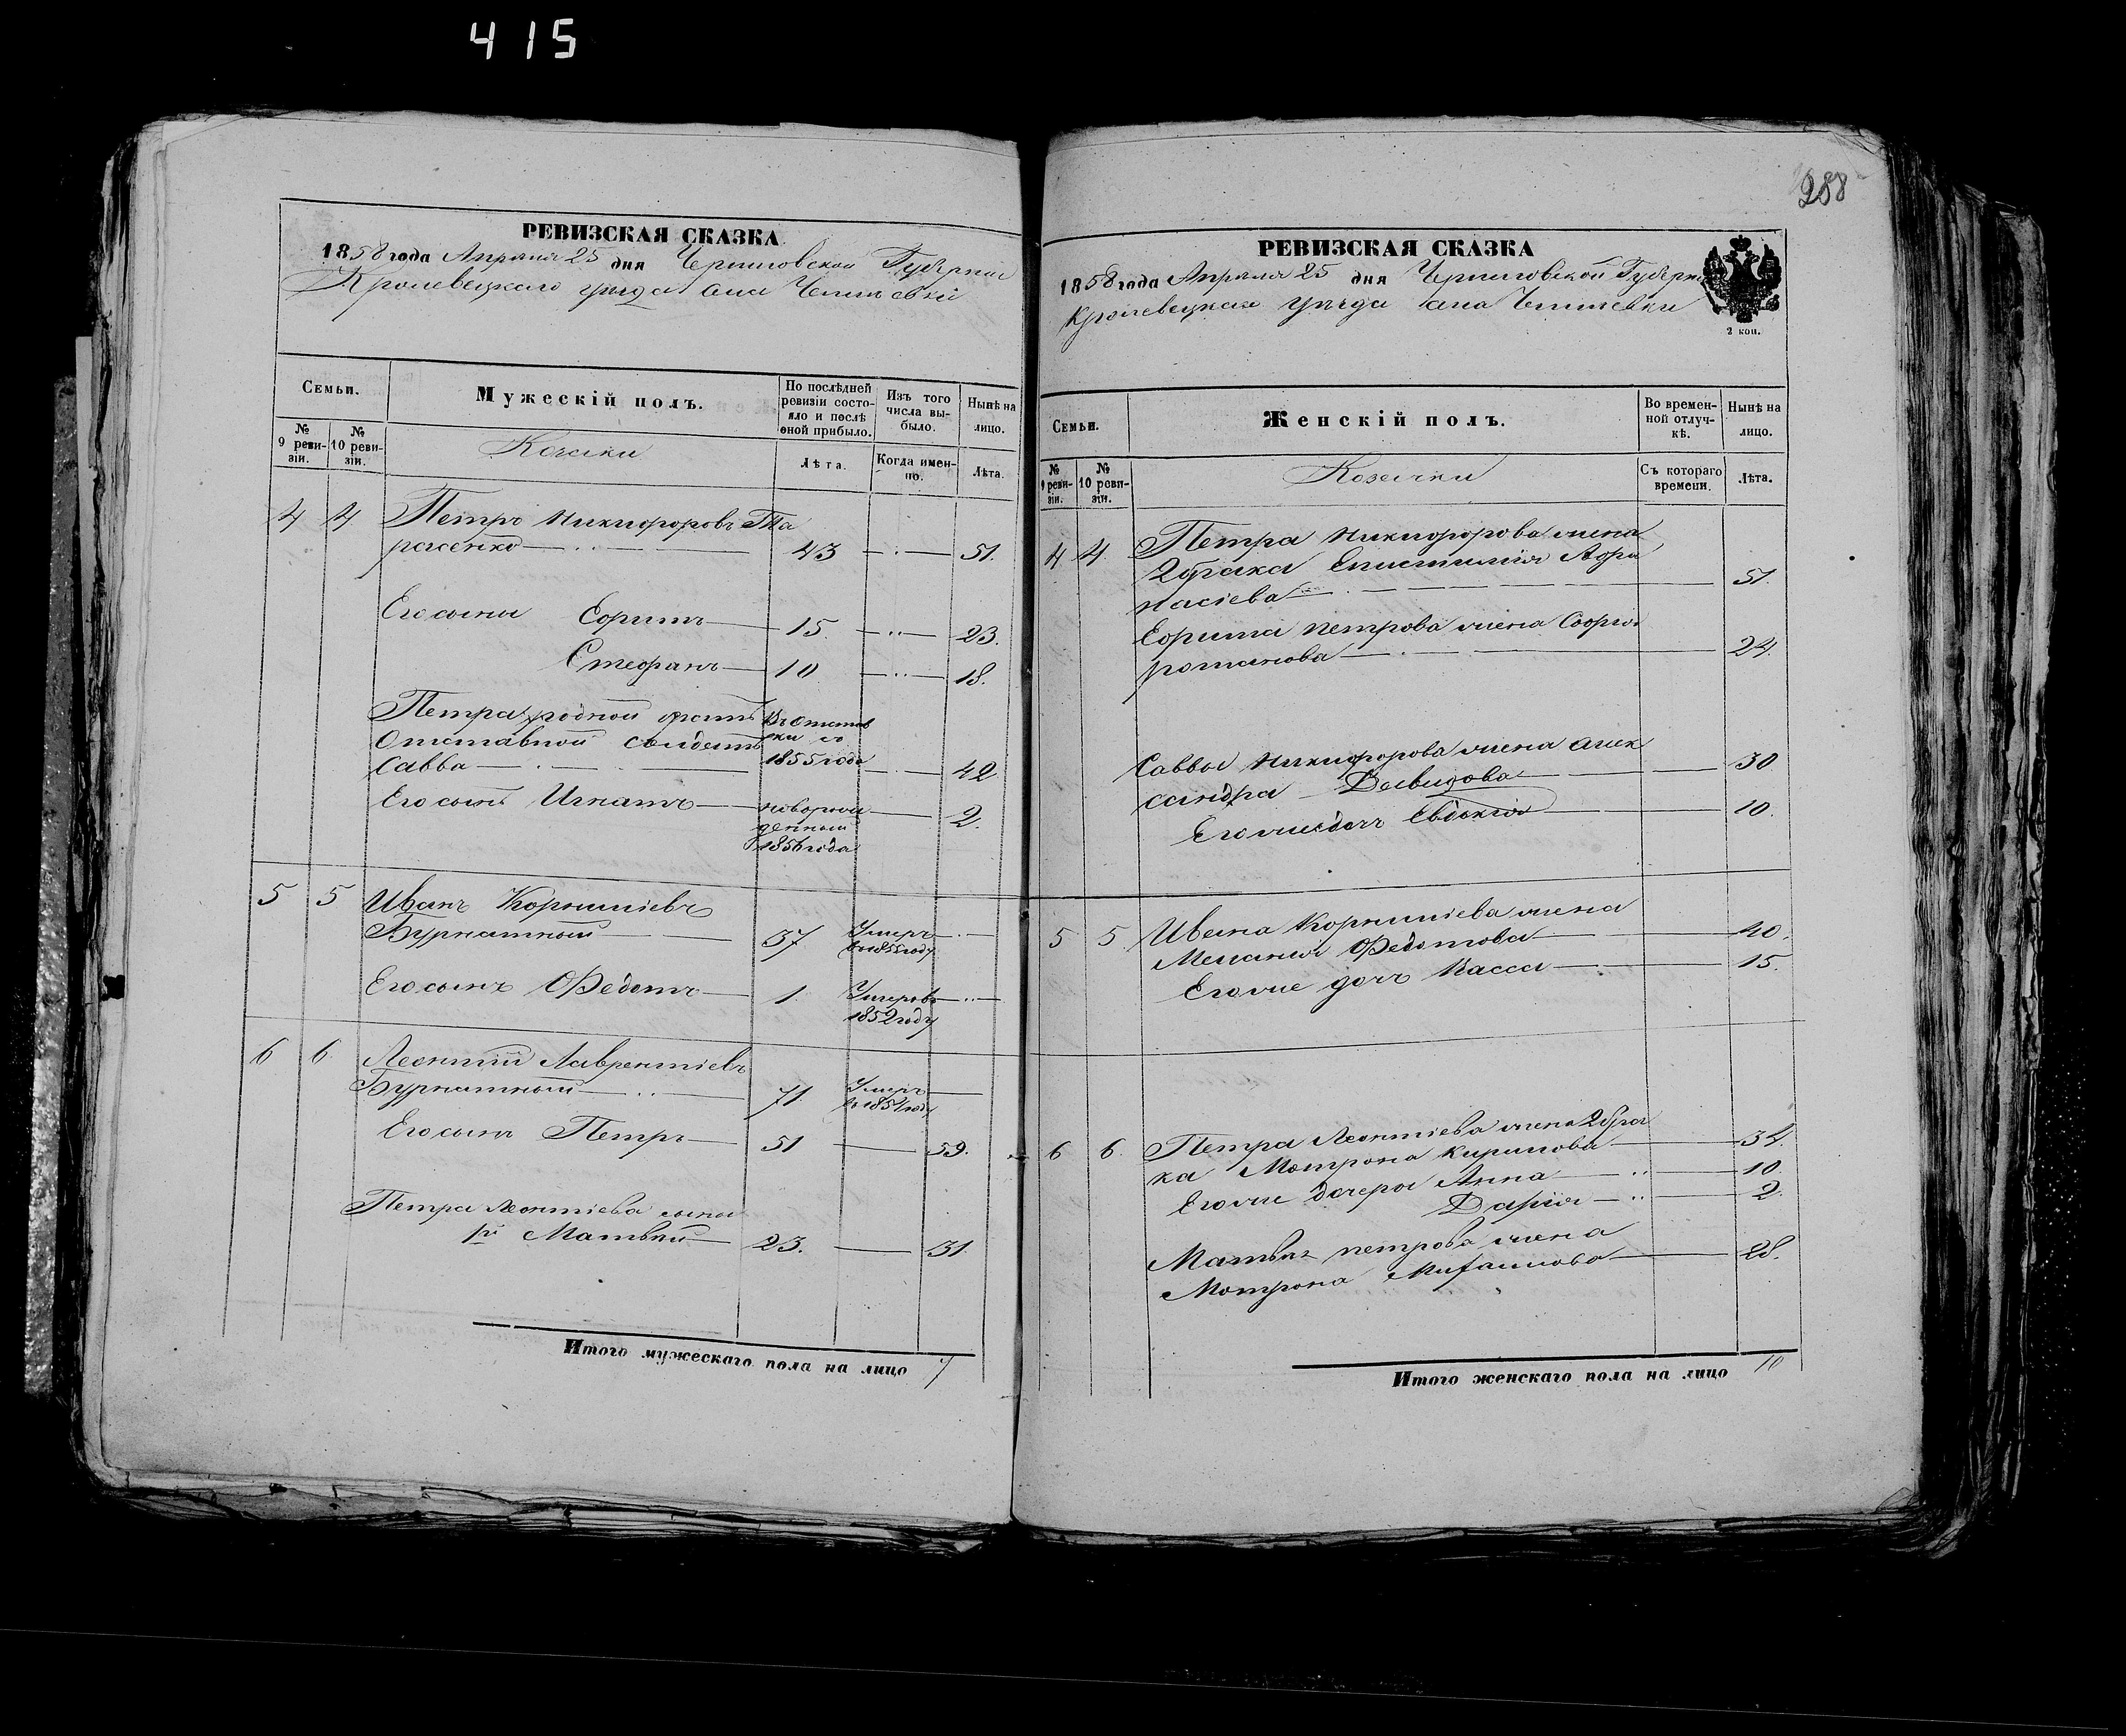 415
288
РЕВИЗСКАЯ СКАЗКА
1858 года Апреля 25 дня Черниговской Губернии
Кролевецкаго уезда села
Семьи.
Мужескій полъ.
По послѣдней ревизіи состояло и послѣ оной прибыло.
Изъ того числа выбыло.
Нынѣ на лицо.
№ 9 ревизіи.
№ 10 ревизіи.
Козаки
Лѣта.
Когда именно.
Лѣта.
4 4 Петръ Никифоровъ Та
расенко 43 51.
Его сыны Ефримъ 15. 23.
Стефанъ 10 18.
Петра родной братъ Въ отстав
Отставной солдатъ ки съ
Савва 1855 года 42
Его сынъ Игнатъ новорож 2.
денный
1856 года
5 5 Иванъ Корниліевъ
Бурнатный 37 Умеръ
въ 1855 году
Его сынъ Федотъ 1. Умеръ въ
1852 году
6 6. Леонтій Лаврентіевъ
Бурнатный 71. Умеръ
въ 1851 году
Его сынъ Петръ 51 59.
Петра Леонтіева сыны
1й Матвей 23. 31.
Итого мужескаго пола на лицо 7
РЕВИЗСКАЯ СКАЗКА
1858 года Апреля 25 дня Черниговской Губерніи
Кролевецкаго уезда села
2 коп.
Семьи.
Женскій полъ.
Во временной отлучкѣ.
Нынѣ на лицо.
№ 9 ревизіи.
№ 10 ревизіи.
Козачки
Съ котораго времени.
Лѣта.
4 4. Петра Никифорова жена
2 брака Епистимія Афа
насіева 51.
Ефрима петрова жена Софія
романова 24.
Саввы Никифорова жена Алек
сандра Давидова 30
Его же дочь Евдокія 10.
5 5. Ивана Корниліева жена
Меланія Федотова 40.
Его же дочь Васса 15.
6 6. Петра Леонтіева жена 2 бра
ка Мотрона Кирилова 34.
Его же дочери Анна 10.
Дарія 2.
Матвея петрова жена
Мотрона Михайлова 28.
Итого женскаго пола на лицо 10